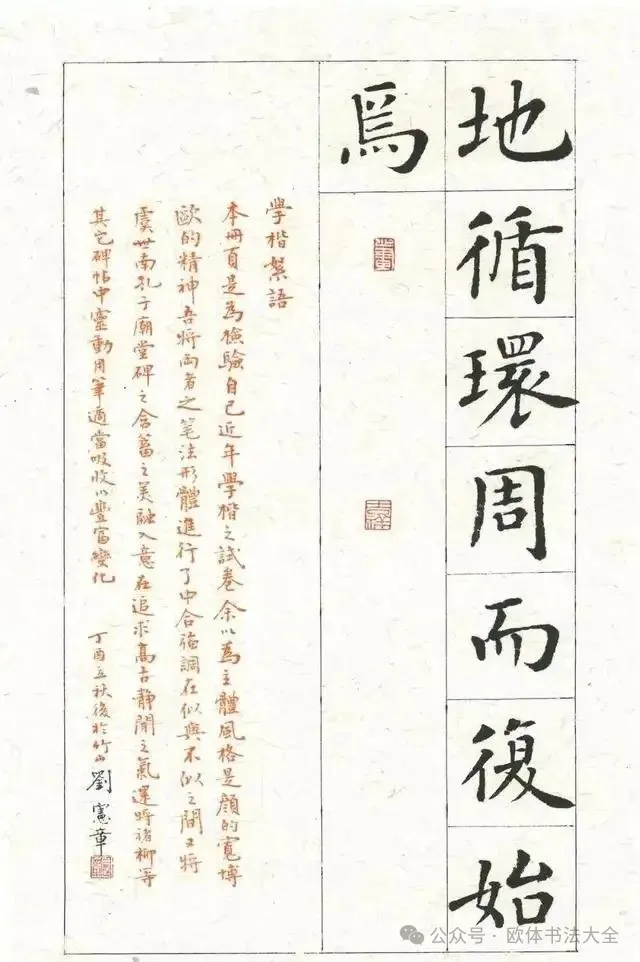 地循環周而復始
焉
學楷絮語
本冊頁是為檢驗自己近年學楷之試卷余以為主體風格是顏的寬博
歐的精神吾將兩者之笔法形體進行了中合強調在似與不似之間又將
虞世南孔子廟堂碑之含蓄之美融入意在追求高古靜閒之氣運時褚柳等
其它碑帖中靈動用筆適當吸收以豐富變化
丁酉立秋後於竹山劉憲章
公众号·欧体书法大全